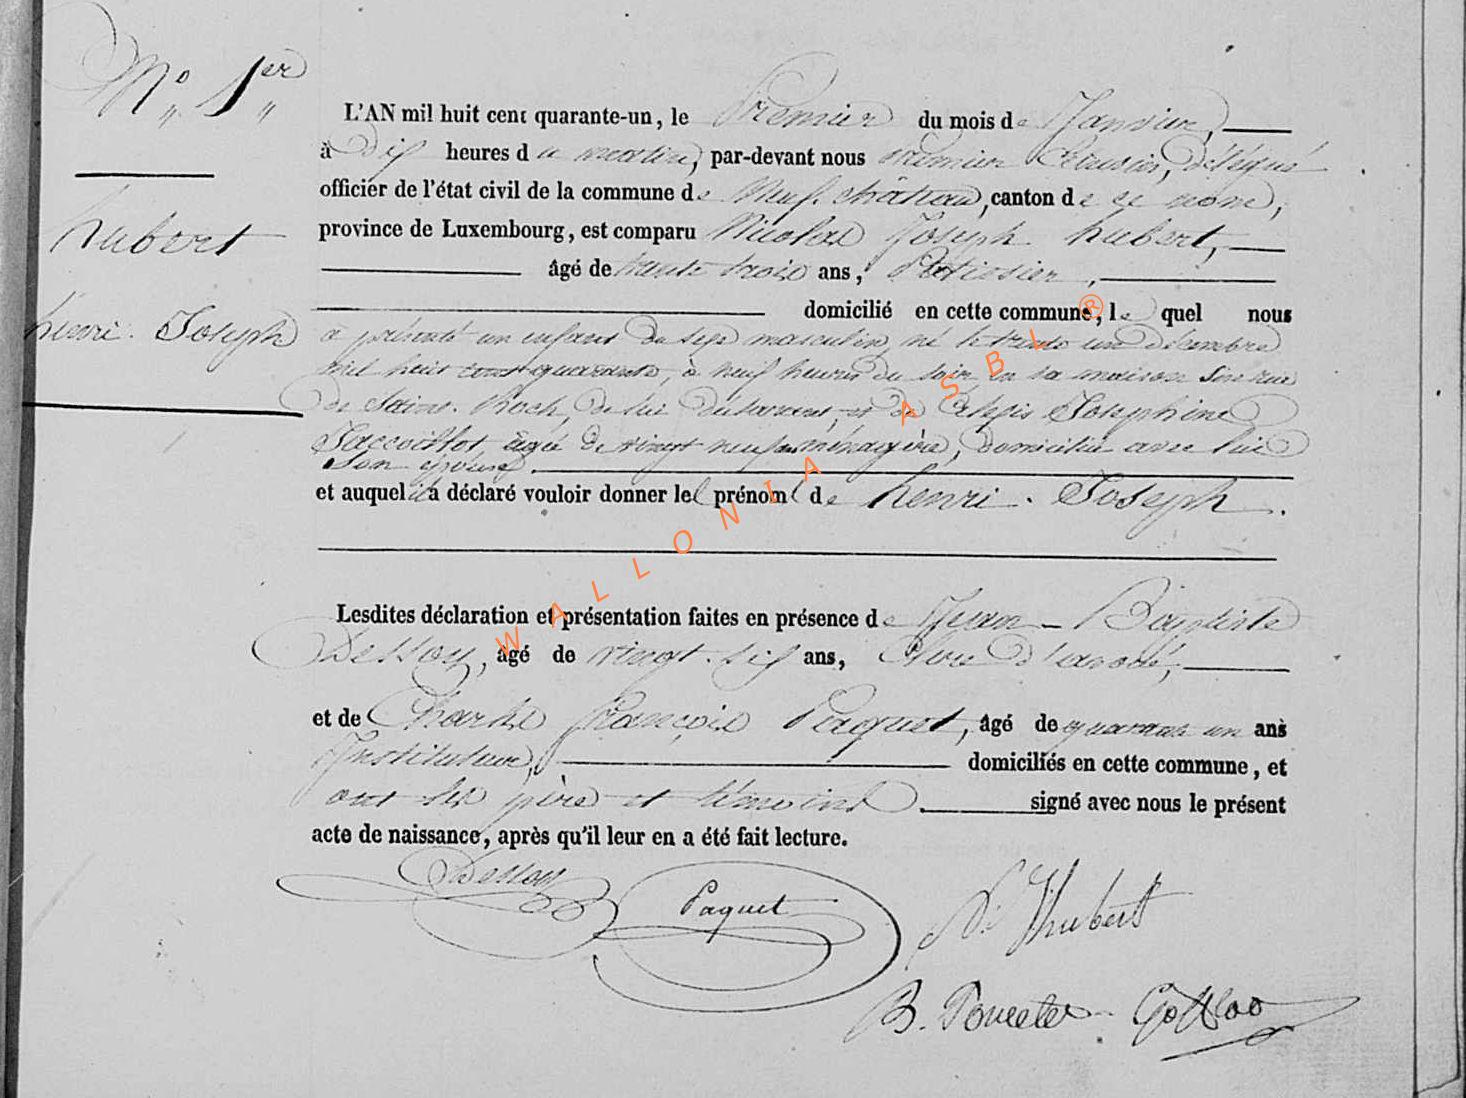 N° 1er
hubert
henri Joseph
L'AN mil huit cent quarante-un, le Premier du mois de Janvier,
à dix heures du matin, par-devant nous Premier Echevin, délégué
officier de l'état civil de la commune de Neufchâteau, canton de ce nom,
province de Luxembourg, est comparu Nicolas Joseph hubert,
âgé de trente trois ans, Patissier,
domicilié en cette commune, lequel nous
a présenté un enfant du sexe masculin, né le trente un décembre
mil huit cent quarante, à neuf heures du soir en sa maison Sise rue
de Saint-Roch, de lui déclarant, et de Josephine
âgée de vingt neuf ans ménagère, domiciliée avec lui
Son épouse.
et auquel il a déclaré vouloir donner le prénom de henri Joseph.
Lesdites déclaration et présentation faites en présence de Jean-Baptiste
Dessoy, âgé de vingt-six ans, Clerc d'avoué,
et de Charles François Paquet, âgé de quarante un ans
Instituteur, domiciliés en cette commune, et
ont les père et témoins signé avec nous le présent
acte de naissance, après qu'il leur en a été fait lecture.
Dessoy Paquet N. J hubert
B. Poncelet
WALLONIA ASBL ®